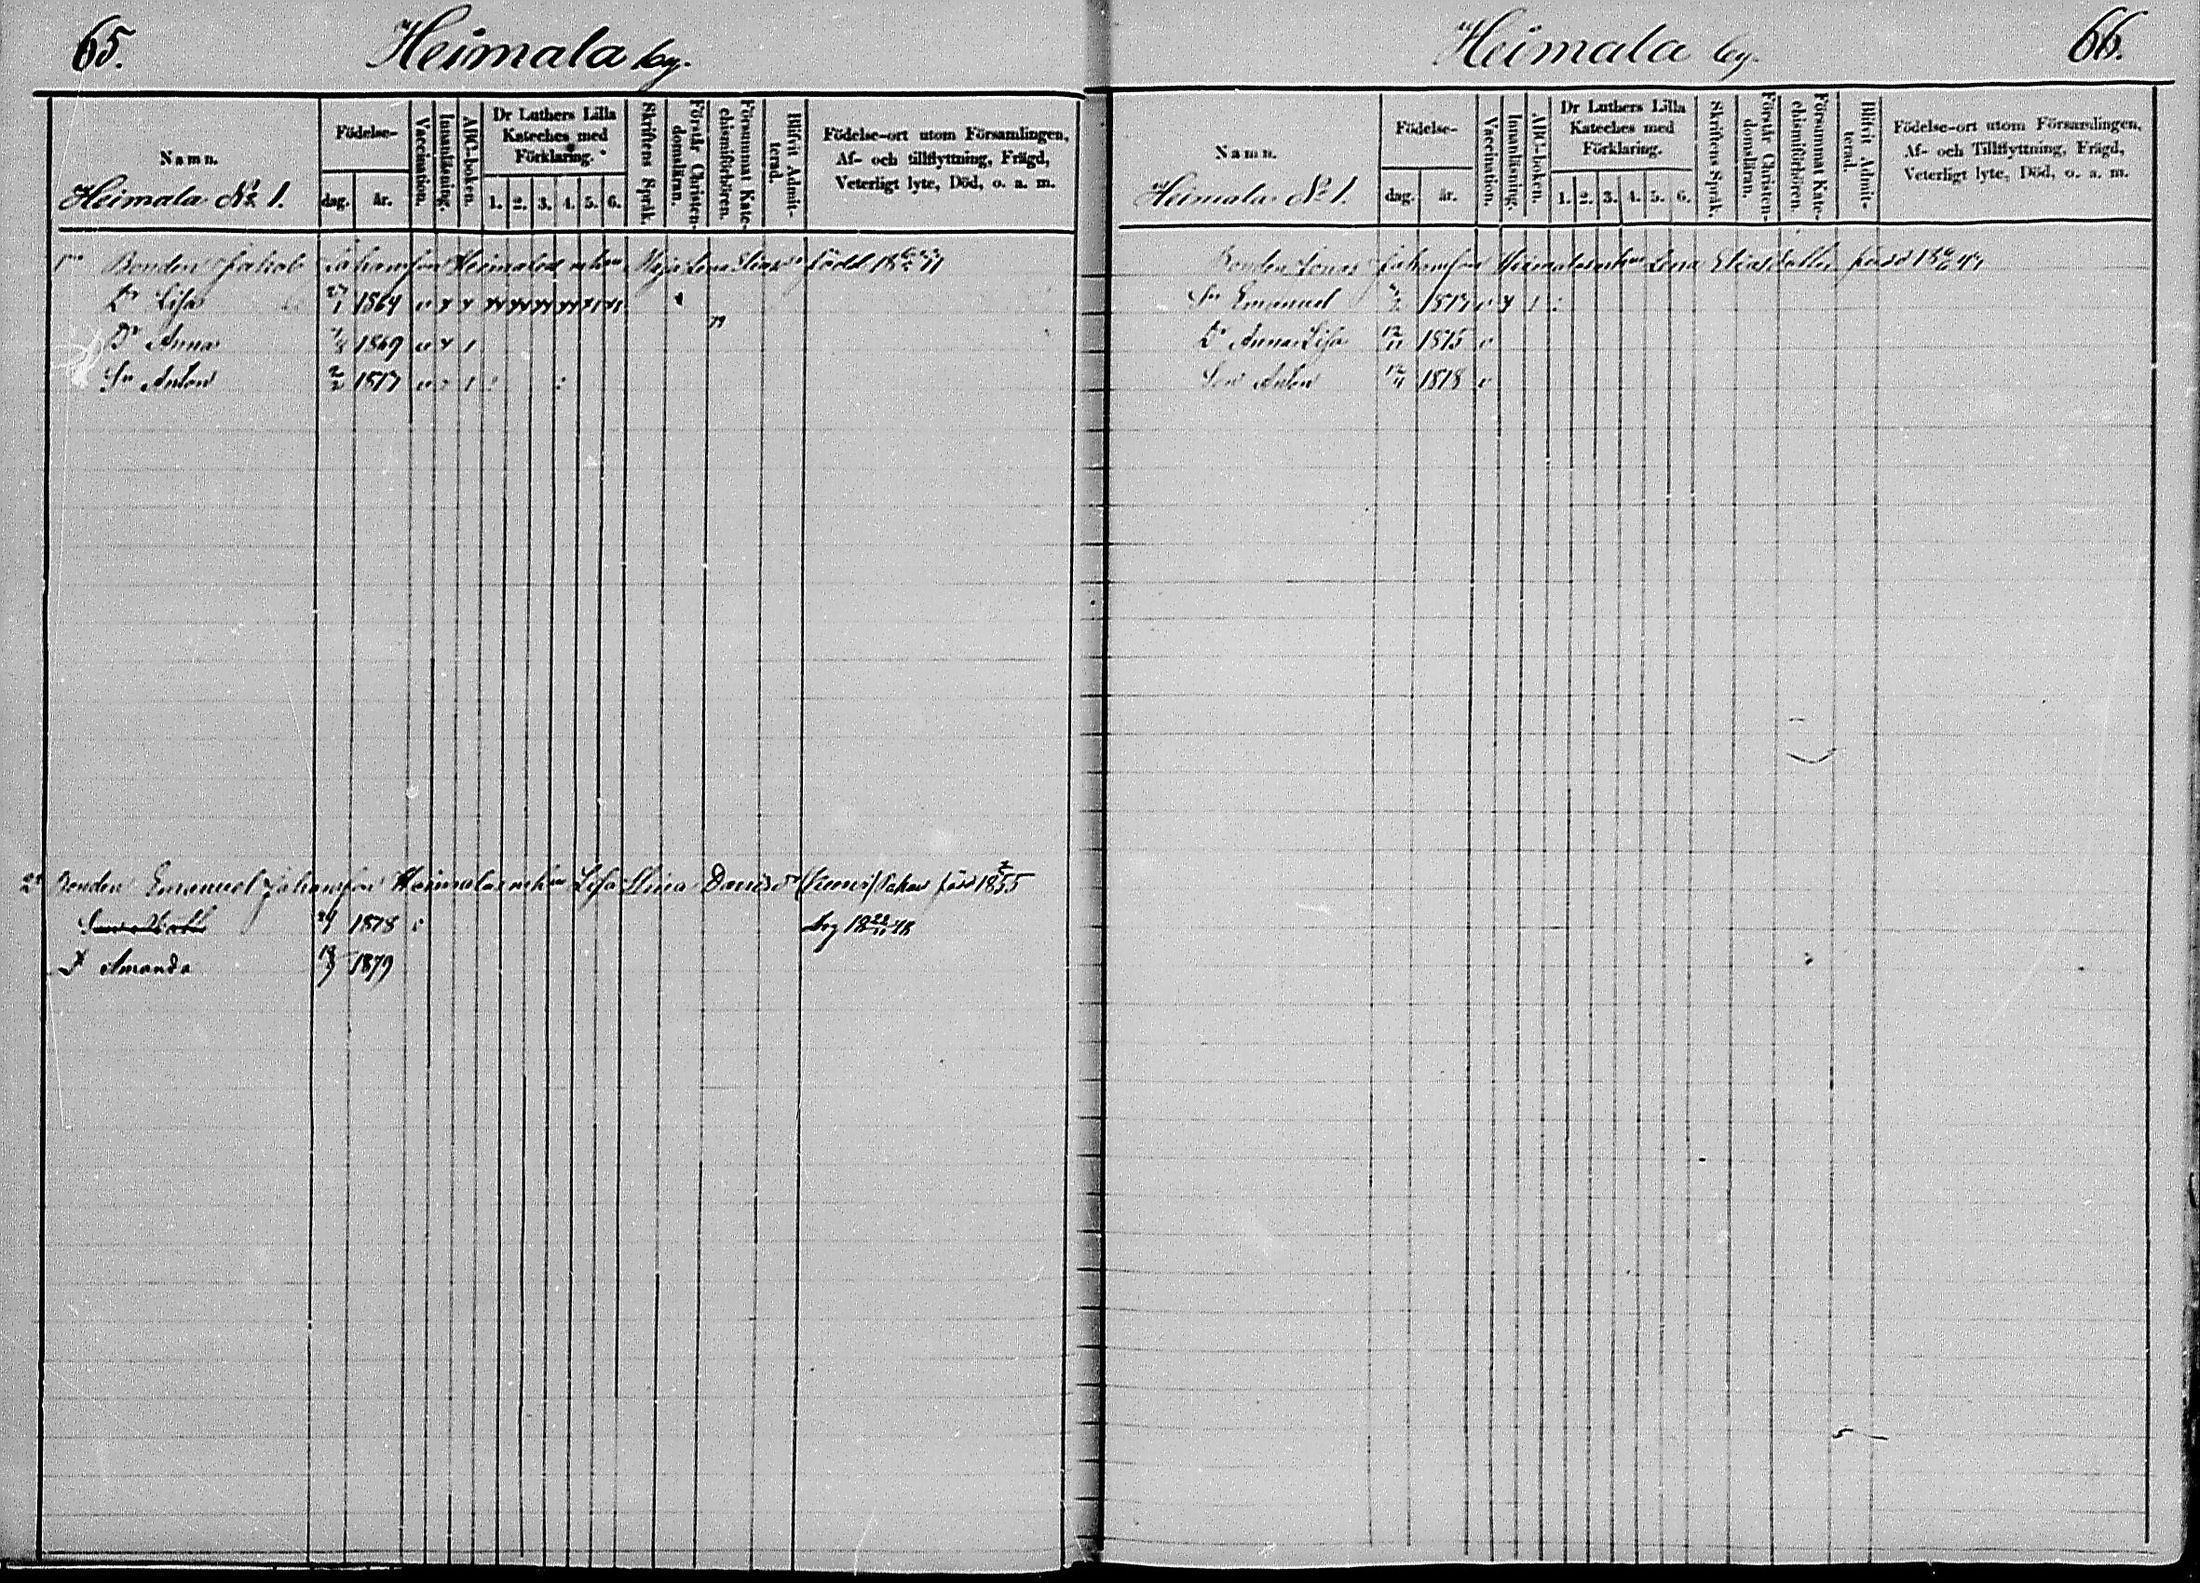 65.
Heimala by.
Namn.
Heimala No 1.
Födelse-
dag.
år.
Vaccination.
Innanläsning.
ABC-boken.
Dr Luthers Lilla
Kateches med
Förklaring.
1. 2. 3. 4. 5. 6.
Skriftens Språk.
Förstår Christen-
domsläran.
Försummat Kate-
chismiförhören.
Blifvit Admit-
terad.
Födelse-ort utom Församlingen,
Af- och tillflyttning, Frägd,
Veterligt lyte, Död, o. a. m.
Bonden Jakob Johansson Heimala Maja Lena född
Dr Lisa 27/1 1864
Dr Anna 1869
Sn Anton 2/2 1877
2 Bonden Emanuel Johansson Heimala Lisa Stina född 18 55
24 1878
dog 18 22/11 78
Dr Amanda 1879
66.
Heimala by.
Namn.
Heimala No 1.
Födelse-
dag.
år.
Vaccination.
Innanläsning.
ABC-boken.
Dr Luthers Lilla
Kateches med
Förklaring.
1. 2. 3. 4. 5. 6.
Skriftens Språk.
Förstår Christen-
domsläran.
Försummat Kate-
chismiförhören.
Blifvit Admit-
terad.
Födelse-ort utom Församlingen,
Af- och Tillflyttning, Frägd,
Veterligt lyte, Död, o. a. m.
Bonden Jonas Johansson Lena född
Sn Emanuel
Dr Anna Lisa 12/11 1875
Son Anton 12/4 1878